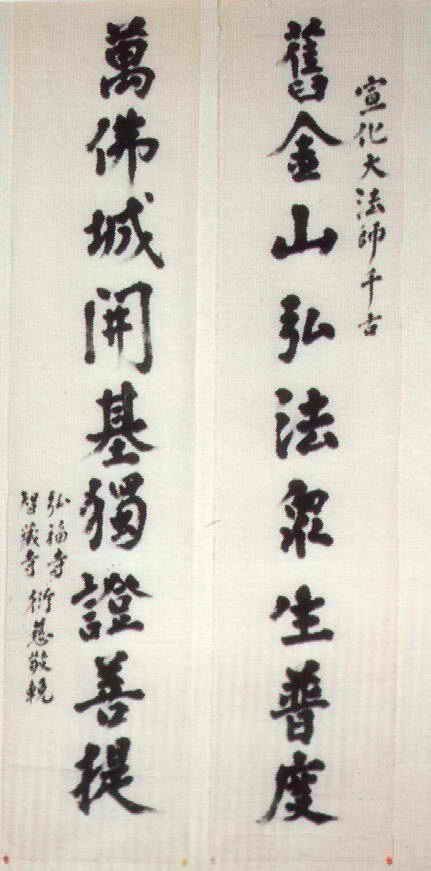 宣化大法師千古
舊金山弘法眾生普度
萬佛城開基獨證善提
弘福寺
智嚴寺 衍慈敬輓